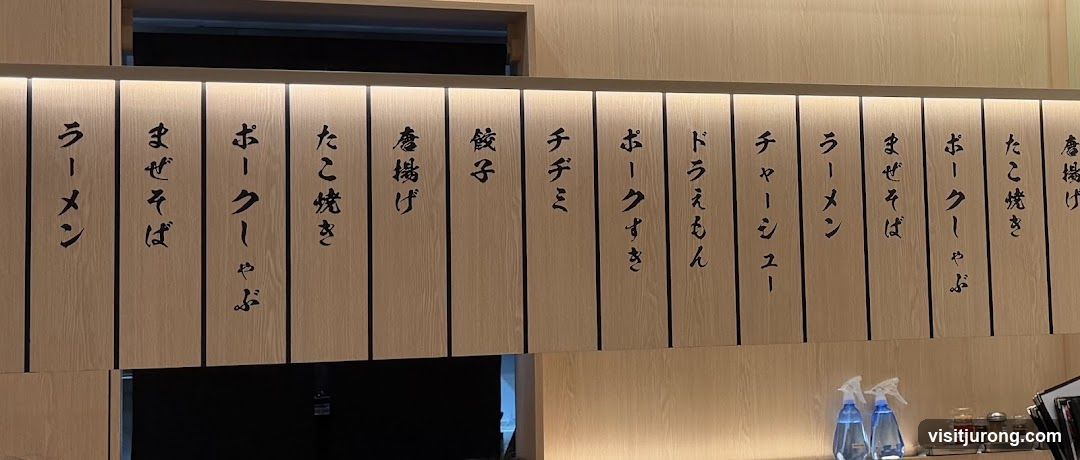 ラーメン
まぜそば
ポークしゃぶ
たこ焼き
唐揚げ
餃子
チヂミ
ポークすき
ドラえもん
チャーシュー
ラーメン
まぜそば
ポークしゃぶ
たこ焼き
唐揚げ
visitjurong.com